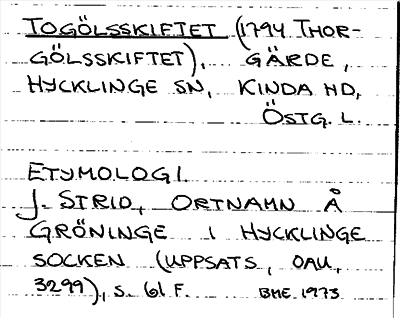 TOGÖLSSKIFTET (1794 THOR-
GÖLSSKIFTET), GÄRDE,
HYCKLINGE SN, KINDA HD,
ÖSTG. L.
ETYMOLOGI
J. STRID, ORTNAMN Å
GRÖNINGE I HYCKLINGE
SOCKEN (UPPSATS, OAU,
3299), S. 61 F. BME 1973